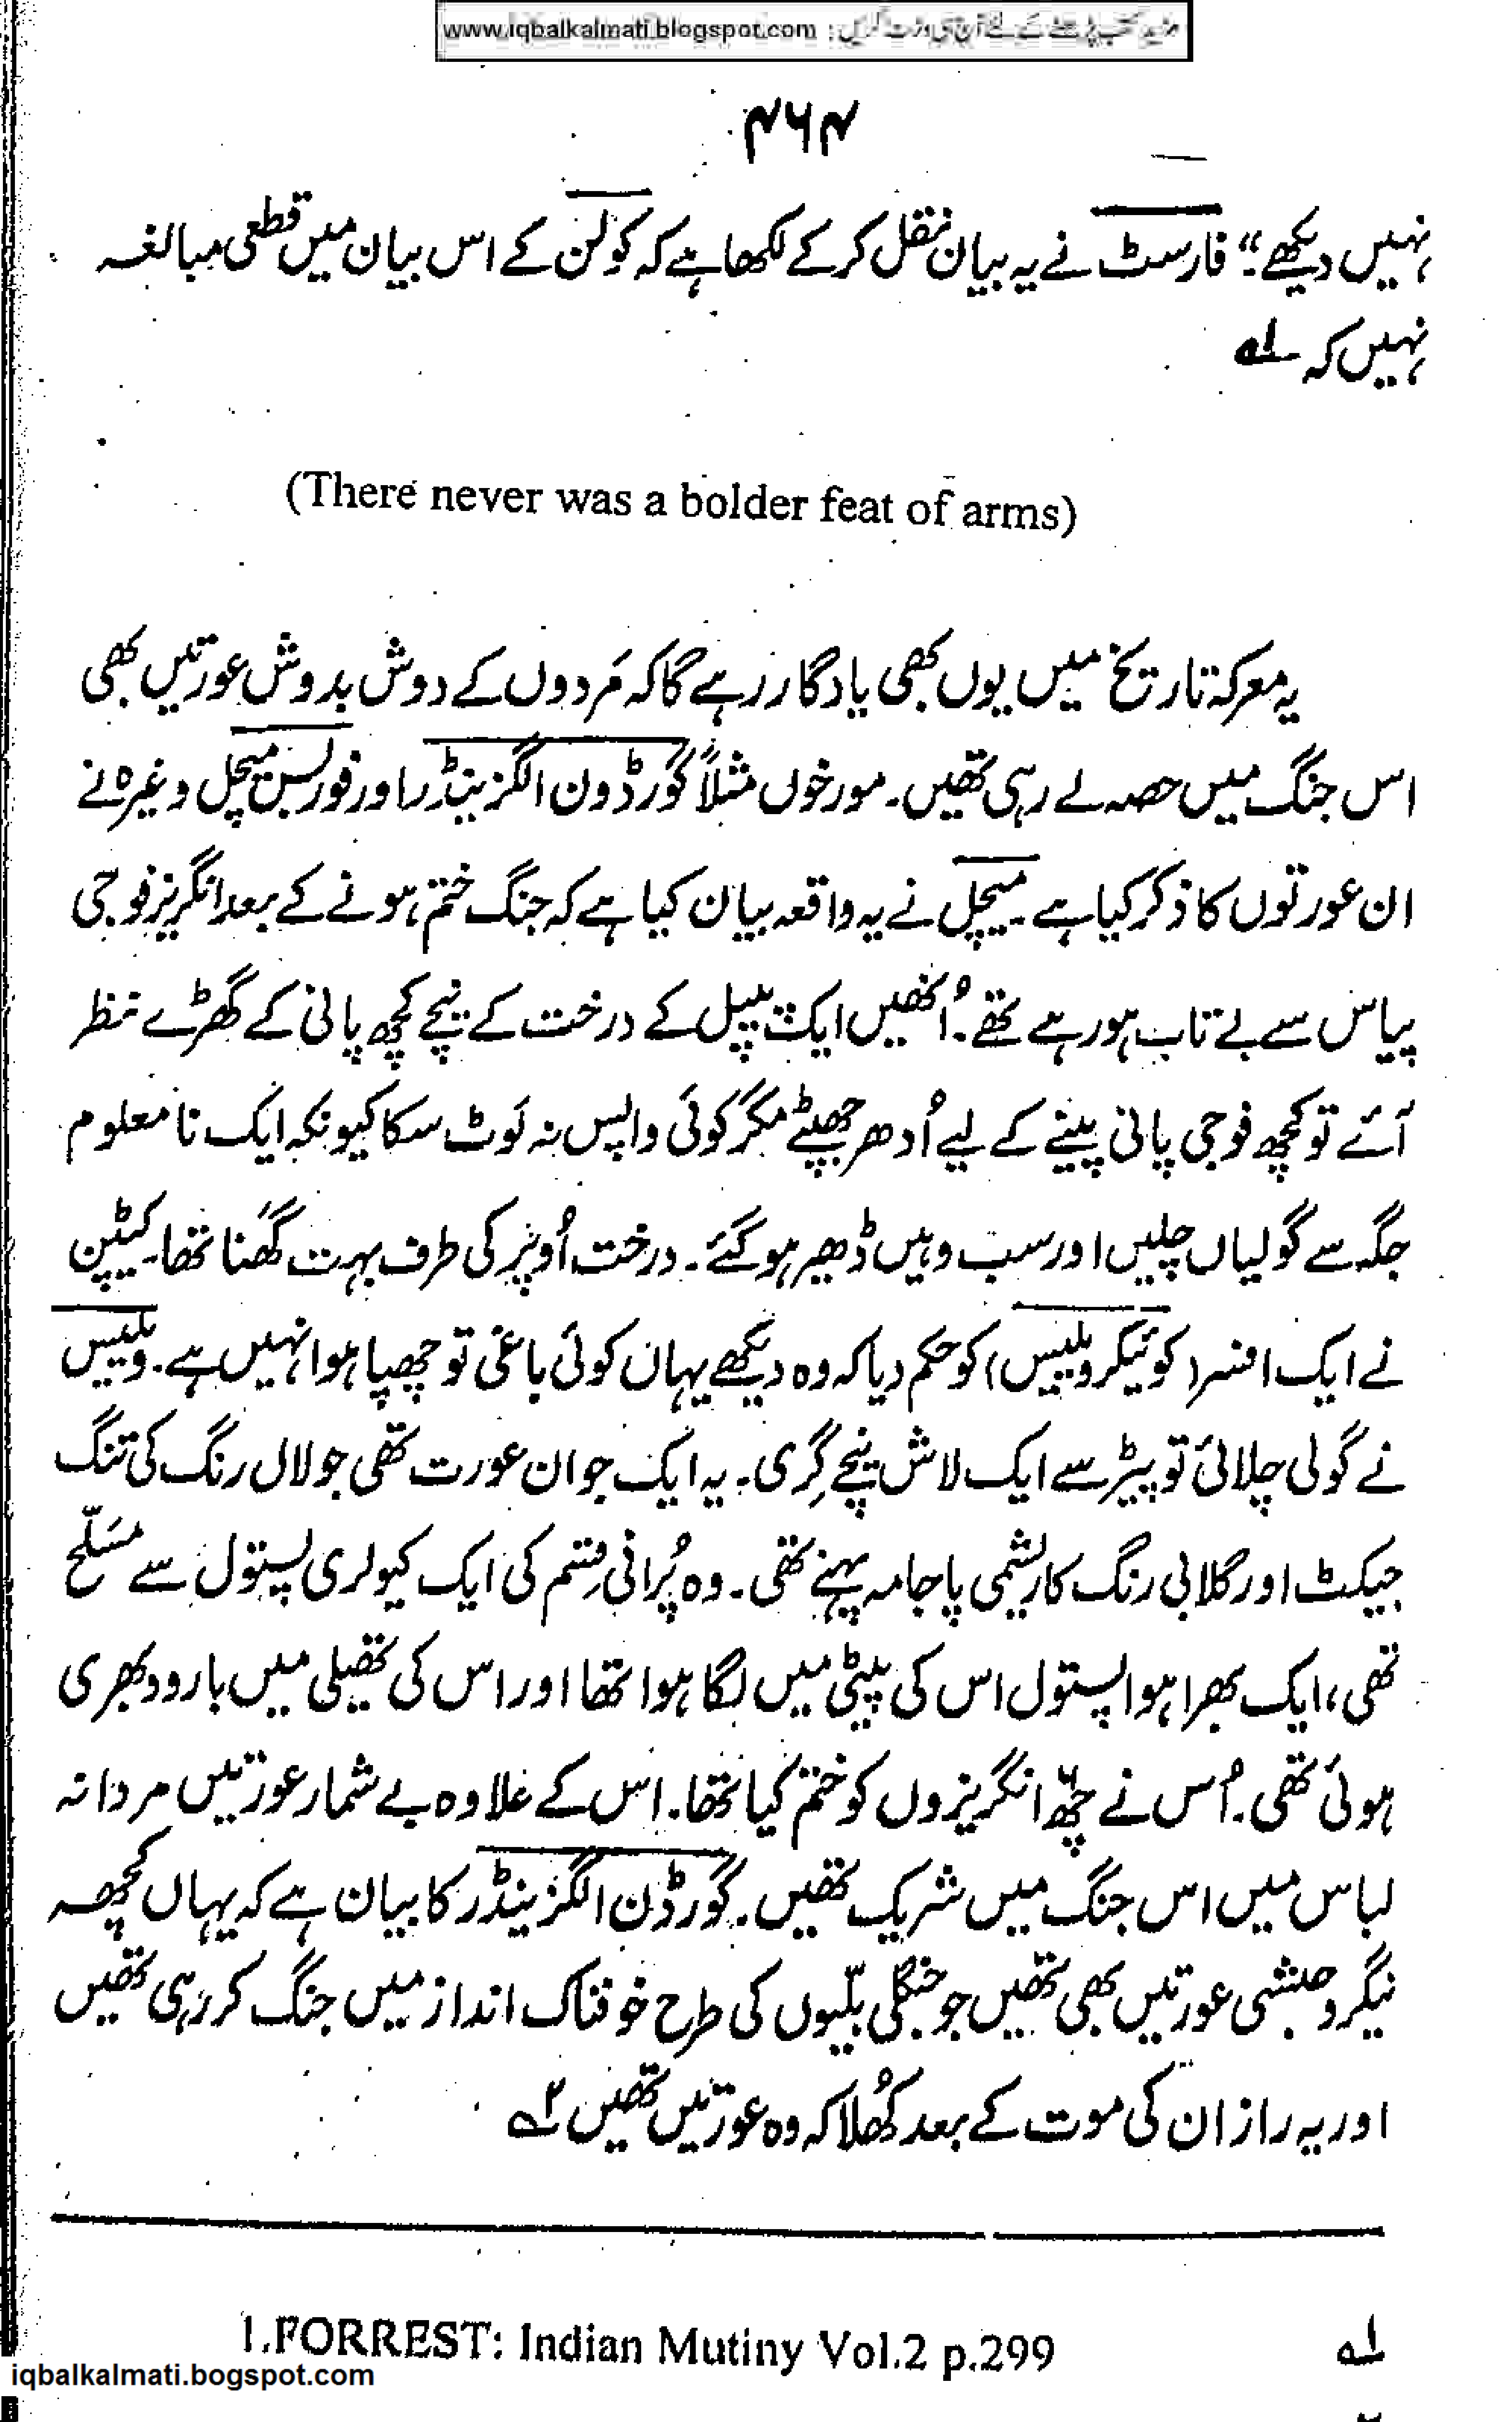 مزید کتب پڑھنے کے لئے آج ہی وزٹ کریں : www.iqbalkalmati.blogspot.com
۴۶۴
نہیں دیکھے۔“ فارسٹ نے یہ بیان نقل کر کے لکھا ہے کہ کولن کے اس بیان میں قطعی مبالغہ
نہیں کہ ۱ے
(There never was a bolder feat of arms)
یہ معرکہ تاریخ میں یوں بھی یادگار رہے گا کہ مَردوں کے دوش بدوش عورتیں بھی
اس جنگ میں حصہ لے رہی تھیں۔ مورخوں مثلاً گورڈون الگزینڈر اور فوربس میچل وغیرہ نے
ان عورتوں کا ذکر کیا ہے۔ میچل نے یہ واقعہ بیان کیا ہے کہ جنگ ختم ہونے کے بعد انگریز فوجی
پیاس سے بے تاب ہو رہے تھے۔ اُنھیں ایک پیپل کے درخت کے نیچے کچھ پانی کے گھڑے نظر
آئے تو کچھ فوجی پانی پینے کے لیے اُدھر جھپٹے مگر کوئی واپس نہ لَوٹ سکا کیونکہ ایک نامعلوم
جگہ سے گولیاں چلیں اور سب وہیں ڈھیر ہو گئے۔ درخت اُوپر کی طرف بہت گھَنا تھا۔ کیپٹن
نے ایک افسر (کوئیکر ویلیس) کو حکم دیا کہ وہ دیکھے یہاں کوئی باغی تو چھپا ہوا نہیں ہے۔ ویلیس
نے گولی چلائی تو پیڑ سے ایک لاش نیچے گِری۔ یہ ایک جوان عورت تھی جو لال رنگ کی تنگ
جیکٹ اور گلابی رنگ کا ریشمی پاجامہ پہنے تھی۔ وہ پُرانی قِسم کی ایک کیولری پستول سے مُسَلّح
تھی، ایک بھرا ہوا پستول اس کی پیٹی میں لگا ہوا تھا اور اس کی تھیلی میں بارود بھری
ہوئی تھی۔ اُس نے چھّ انگریزوں کو ختم کیا تھا۔ اس کے علاوہ بے شمار عورتیں مردانہ
لباس میں اس جنگ میں شریک تھیں۔ گورڈن الگزینڈر کا بیان ہے کہ یہاں کچھ
نیگرو حبشی عورتیں بھی تھیں جو جنگلی بلّیوں کی طرح خوفناک انداز میں جنگ کر رہی تھیں
اور یہ راز ان کی موت کے بعد کُھلا کہ وہ عورتیں تھیں ۲ے
۱ے 1.FORREST: Indian Mutiny Vol.2 p.299
iqbalkalmati.bogspot.com